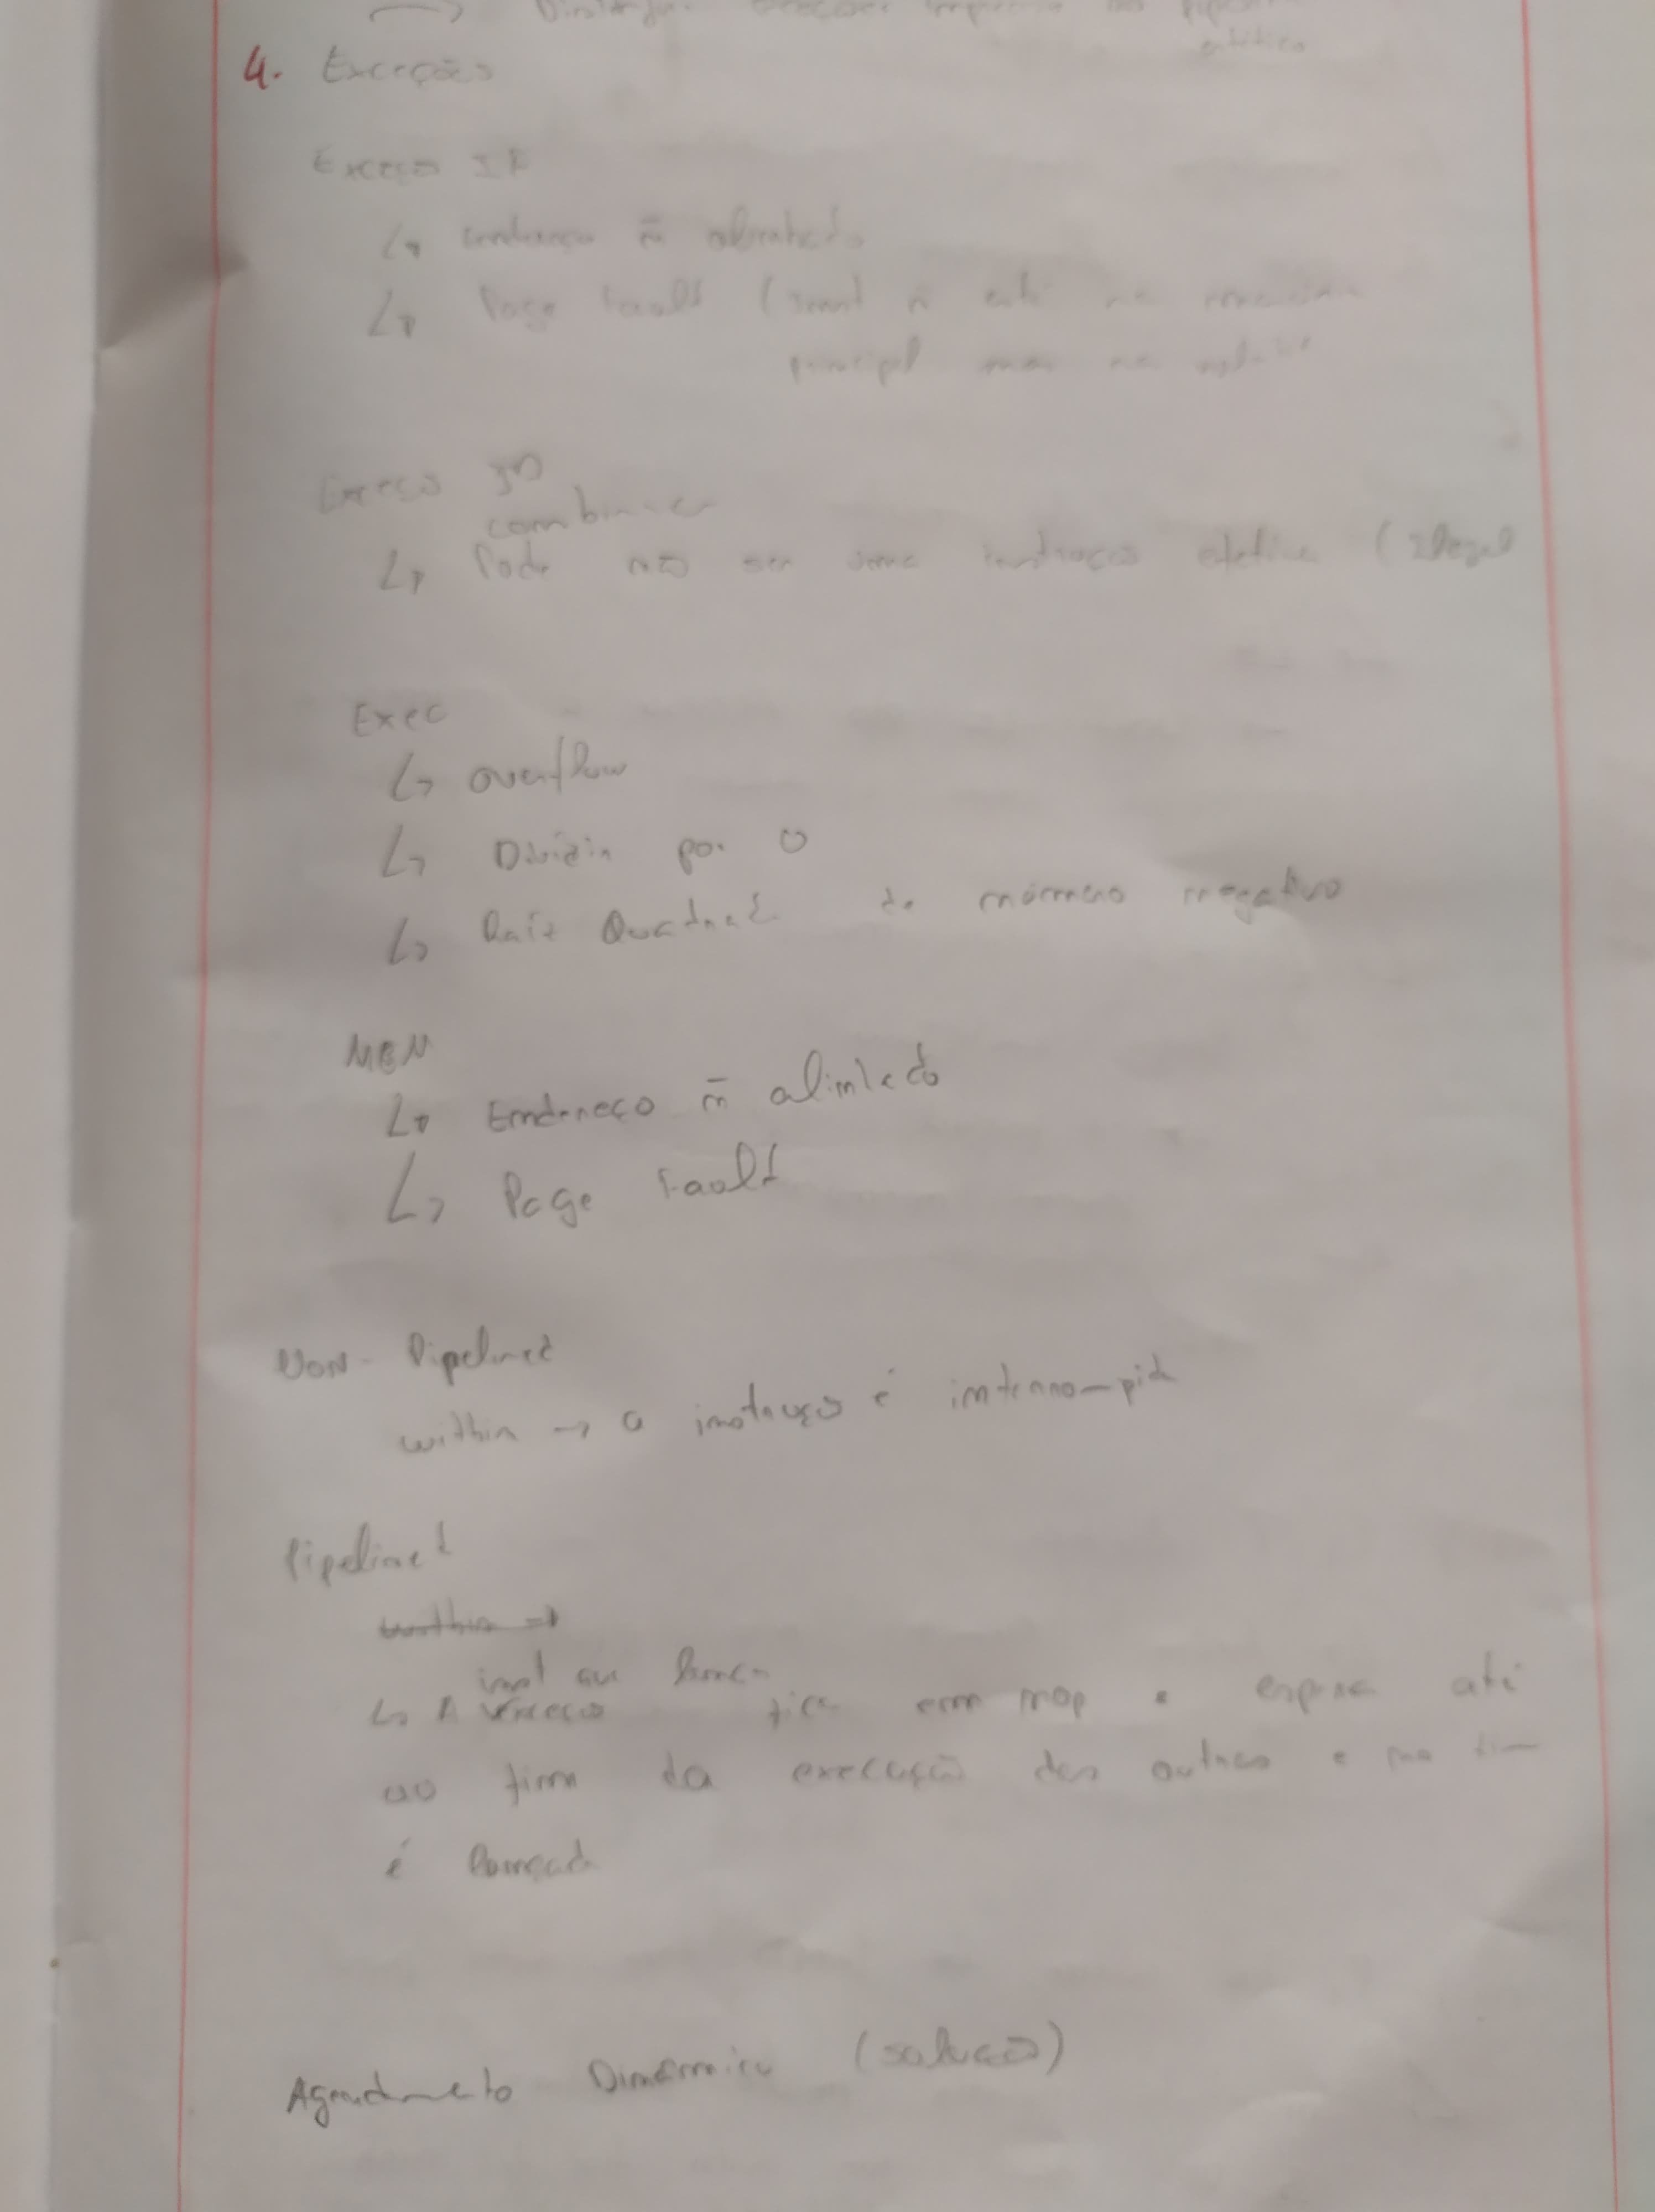 4. Exceções
Exceção IF
↳ endereço ñ alinhado
↳ Page Fault ( ñ está na memória
principal mas na
Exceção ID
combinacr
↳ Pode não ser uma instrução efetiva (Ilegal
Exec
↳ overflow
↳ Dividir por 0
↳ Raiz Quadrad de número negativo
MEM
↳ Endereço ñ alinhado
↳ Page Fault
Non-Pipelined
within → a instrução é interrompida
Pipelined
within →
inst que lança
↳ A exceção fica em nop e espera até
ao fim da execução das outras e no fim
é lançada
Agendamento Dinâmico (solução)